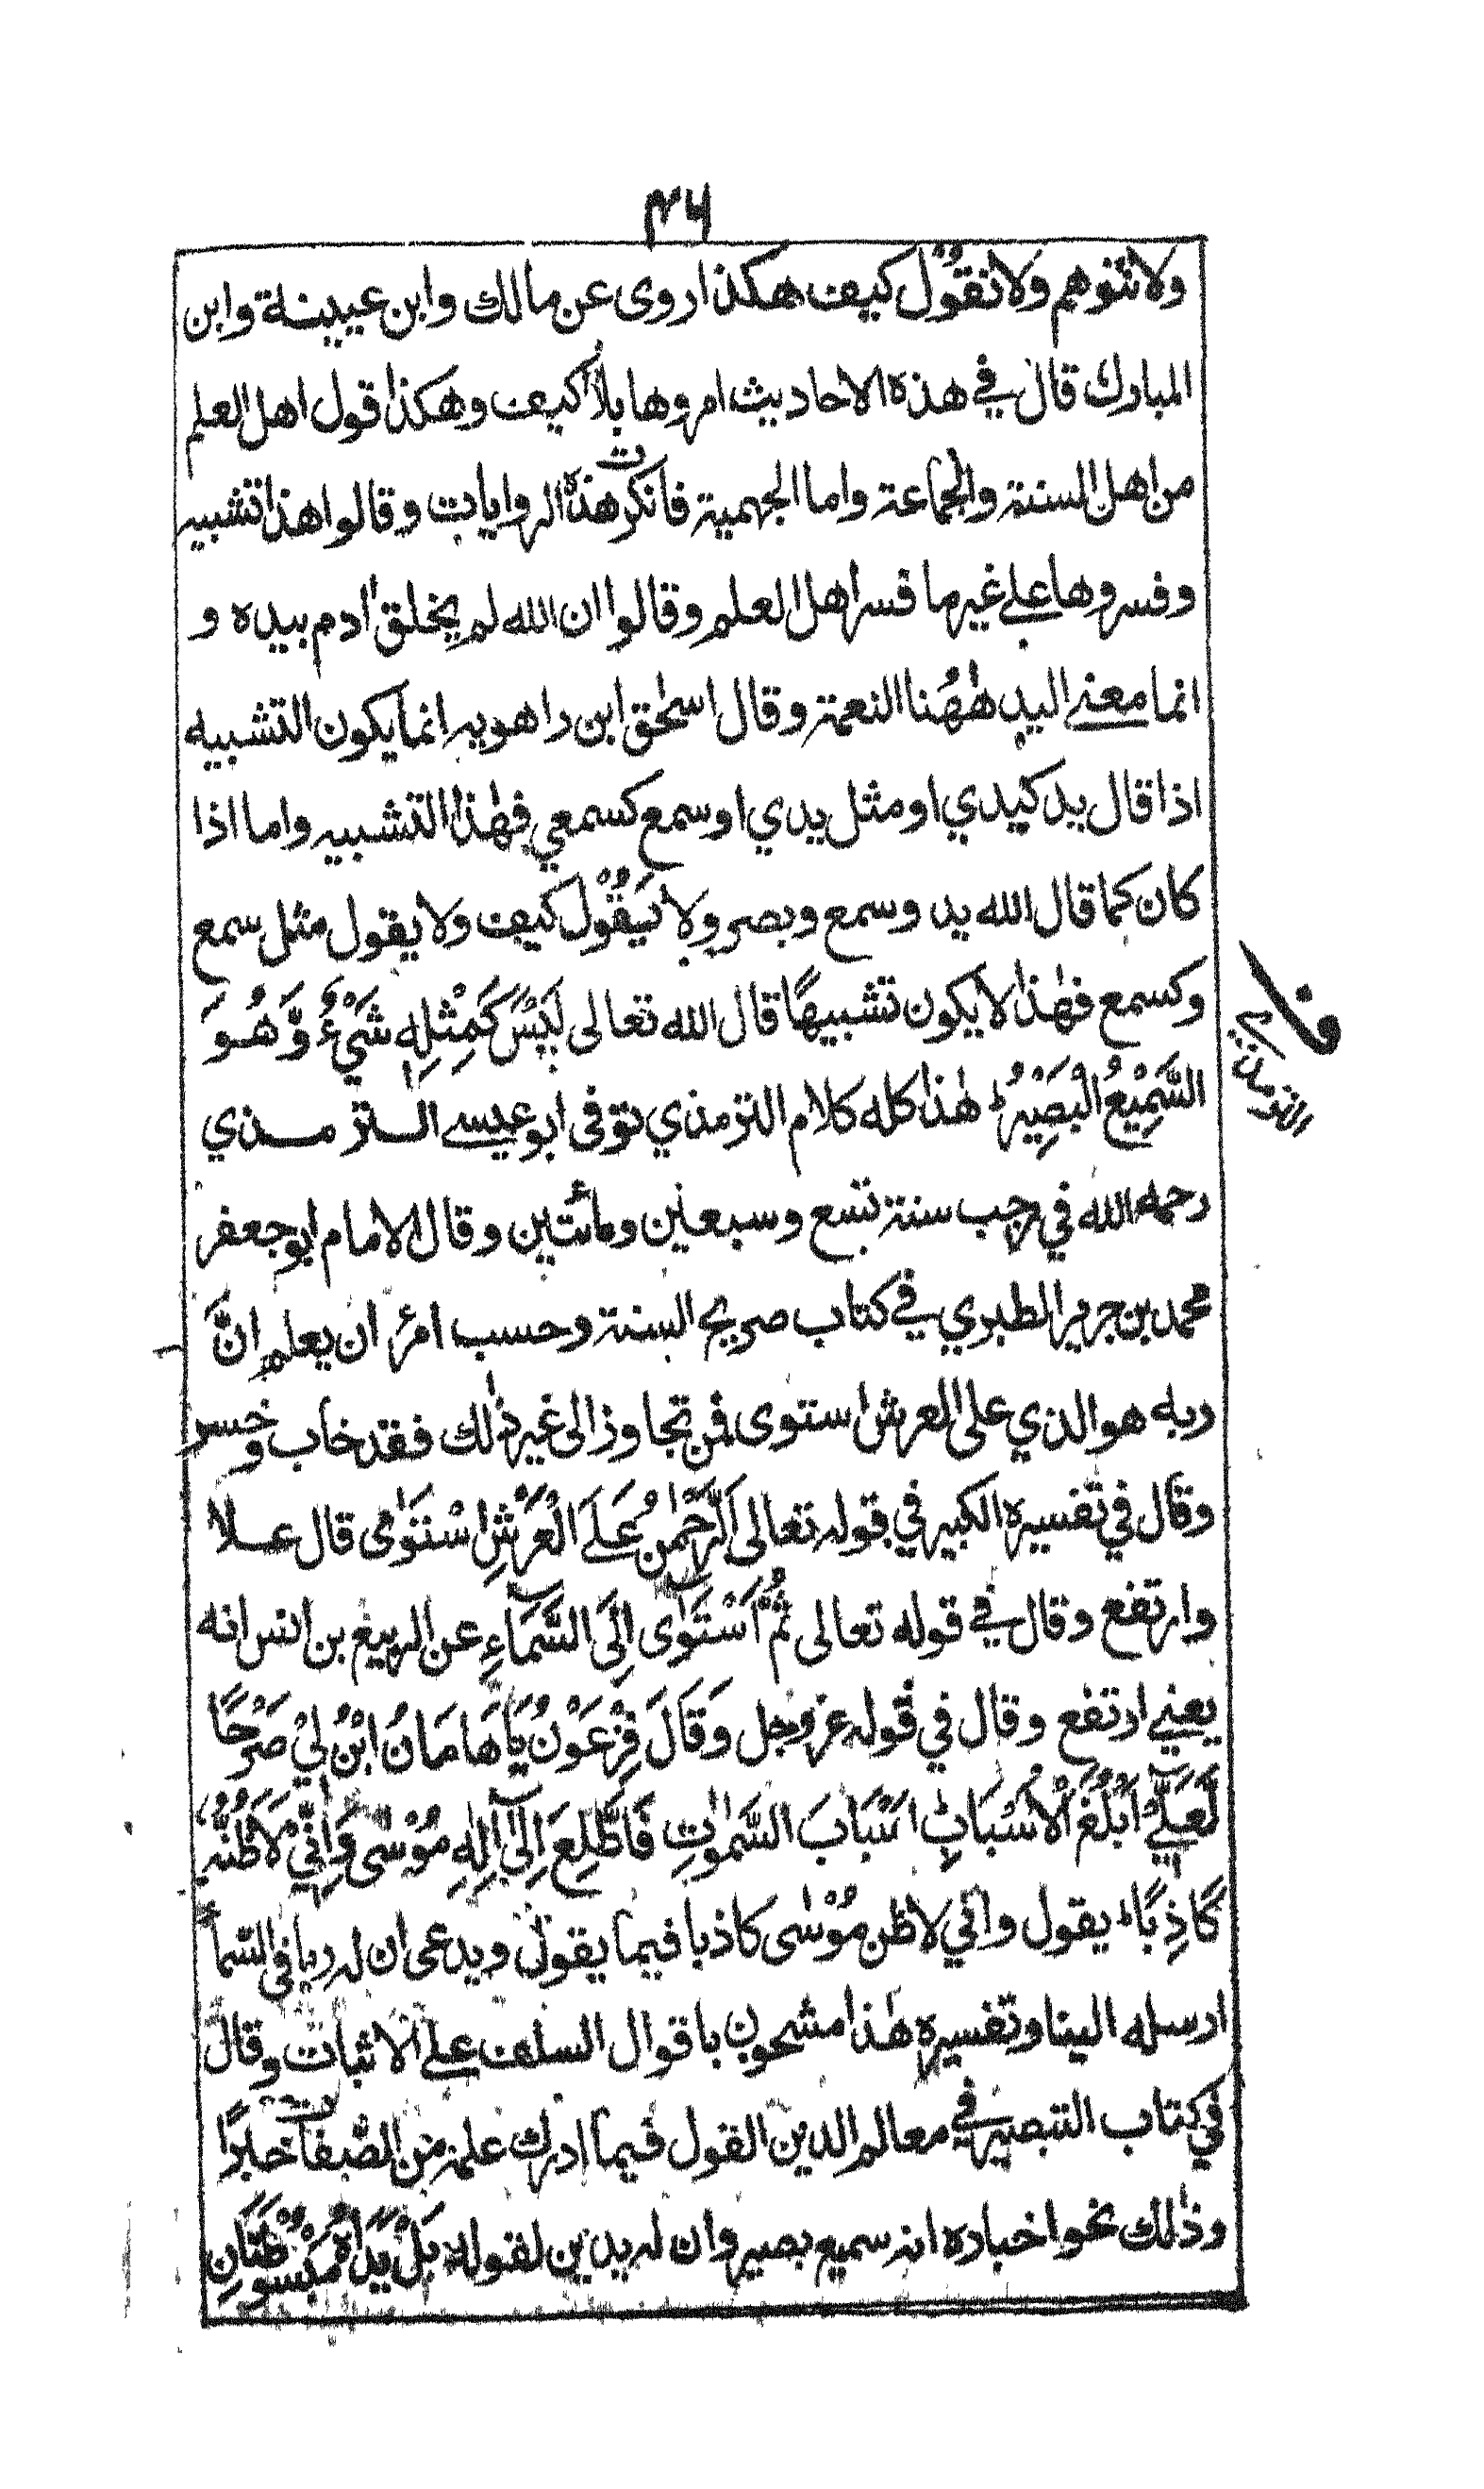 ۴۶
ولا نتوهم ولا نقول كيف هكذا روى عن مالك وابن عيينة وابن
المبارك قال في هذه الاحاديث امروها بلا كيف وهكذا قول اهل العلم
من اهل السنة والجماعة واما الجهمية فانكرت هذه الروايات وقالوا هذا تشبيه
وفسروها على غير ما فسر اهل العلم وقالوا ان الله لم يخلق ادم بيده و
انما معنى اليد ههُنا النعمة وقال اسحٰق ابن راهويه انما يكون التشبيه
اذا قال يد كيدي او مثل يدي او سمع كسمعي فهٰذا التشبيه واما اذا
كان كما قال الله يد وسمع وبصر ولا يَقُوْل كيف ولا يقول مثل سمع
وكسمع فهٰذا لا يكون تشبيهًا قال الله تعالى لَيْسَ كَمِثْلِهٖ شَيْءٌ وَّهُوَ
السَّمِيْعُ الْبَصِيْرُ ط هٰذا كله كلام الترمذي توفى ابو عيسى الترمذي
رحمه الله في رجب سنة تسع وسبعين ومائتين وقال الامام ابو جعفر
محمد بن جرير الطبري في كتاب صريح السنة وحسب امرئ ان يعلم انَّ
ربه هو الذي على العرش استوى فمن تجاوز الى غير ذٰلك فقد خاب وخسر
وقال في تفسيره الكبير في قوله تعالى اَلرَّحْمٰنُ عَلَى الْعَرْشِ اسْتَوٰى قال علا
وارتفع وقال في قوله تعالى ثُمَّ اسْتَوٰى اِلَى السَّمَآءِ عن الربيع بن انس انه
يعني ارتفع وقال في قوله عز وجل وَقَالَ فِرْعَوْنُ يَا هَامَانُ ابْنِ لِيْ صَرْحًا
لَّعَلِّيْ اَبْلُغُ الْاَسْبَابَ اَسْبَابَ السَّمٰوٰتِ فَاَطَّلِعَ اِلٰى اِلٰهِ مُوْسٰى وَاِنِّيْ لَاَظُنُّهٗ
كَاذِبًا ط يقول واني لاظن مُوْسٰى كاذبا فيما يقول ويدعى ان له ربا في السماء
ارسله الينا وتفسيره هٰذا مشحون باقوال السلف على الاثبات وقال
في كتاب التبصير في معالم الدين القول فيما ادرك علمه من الصفات خبرًا
وذٰلك نحو اخباره انه سميع بصير وان له يدين لقوله بَلْ يَدَاهُ مَبْسُوْطَتَانِ